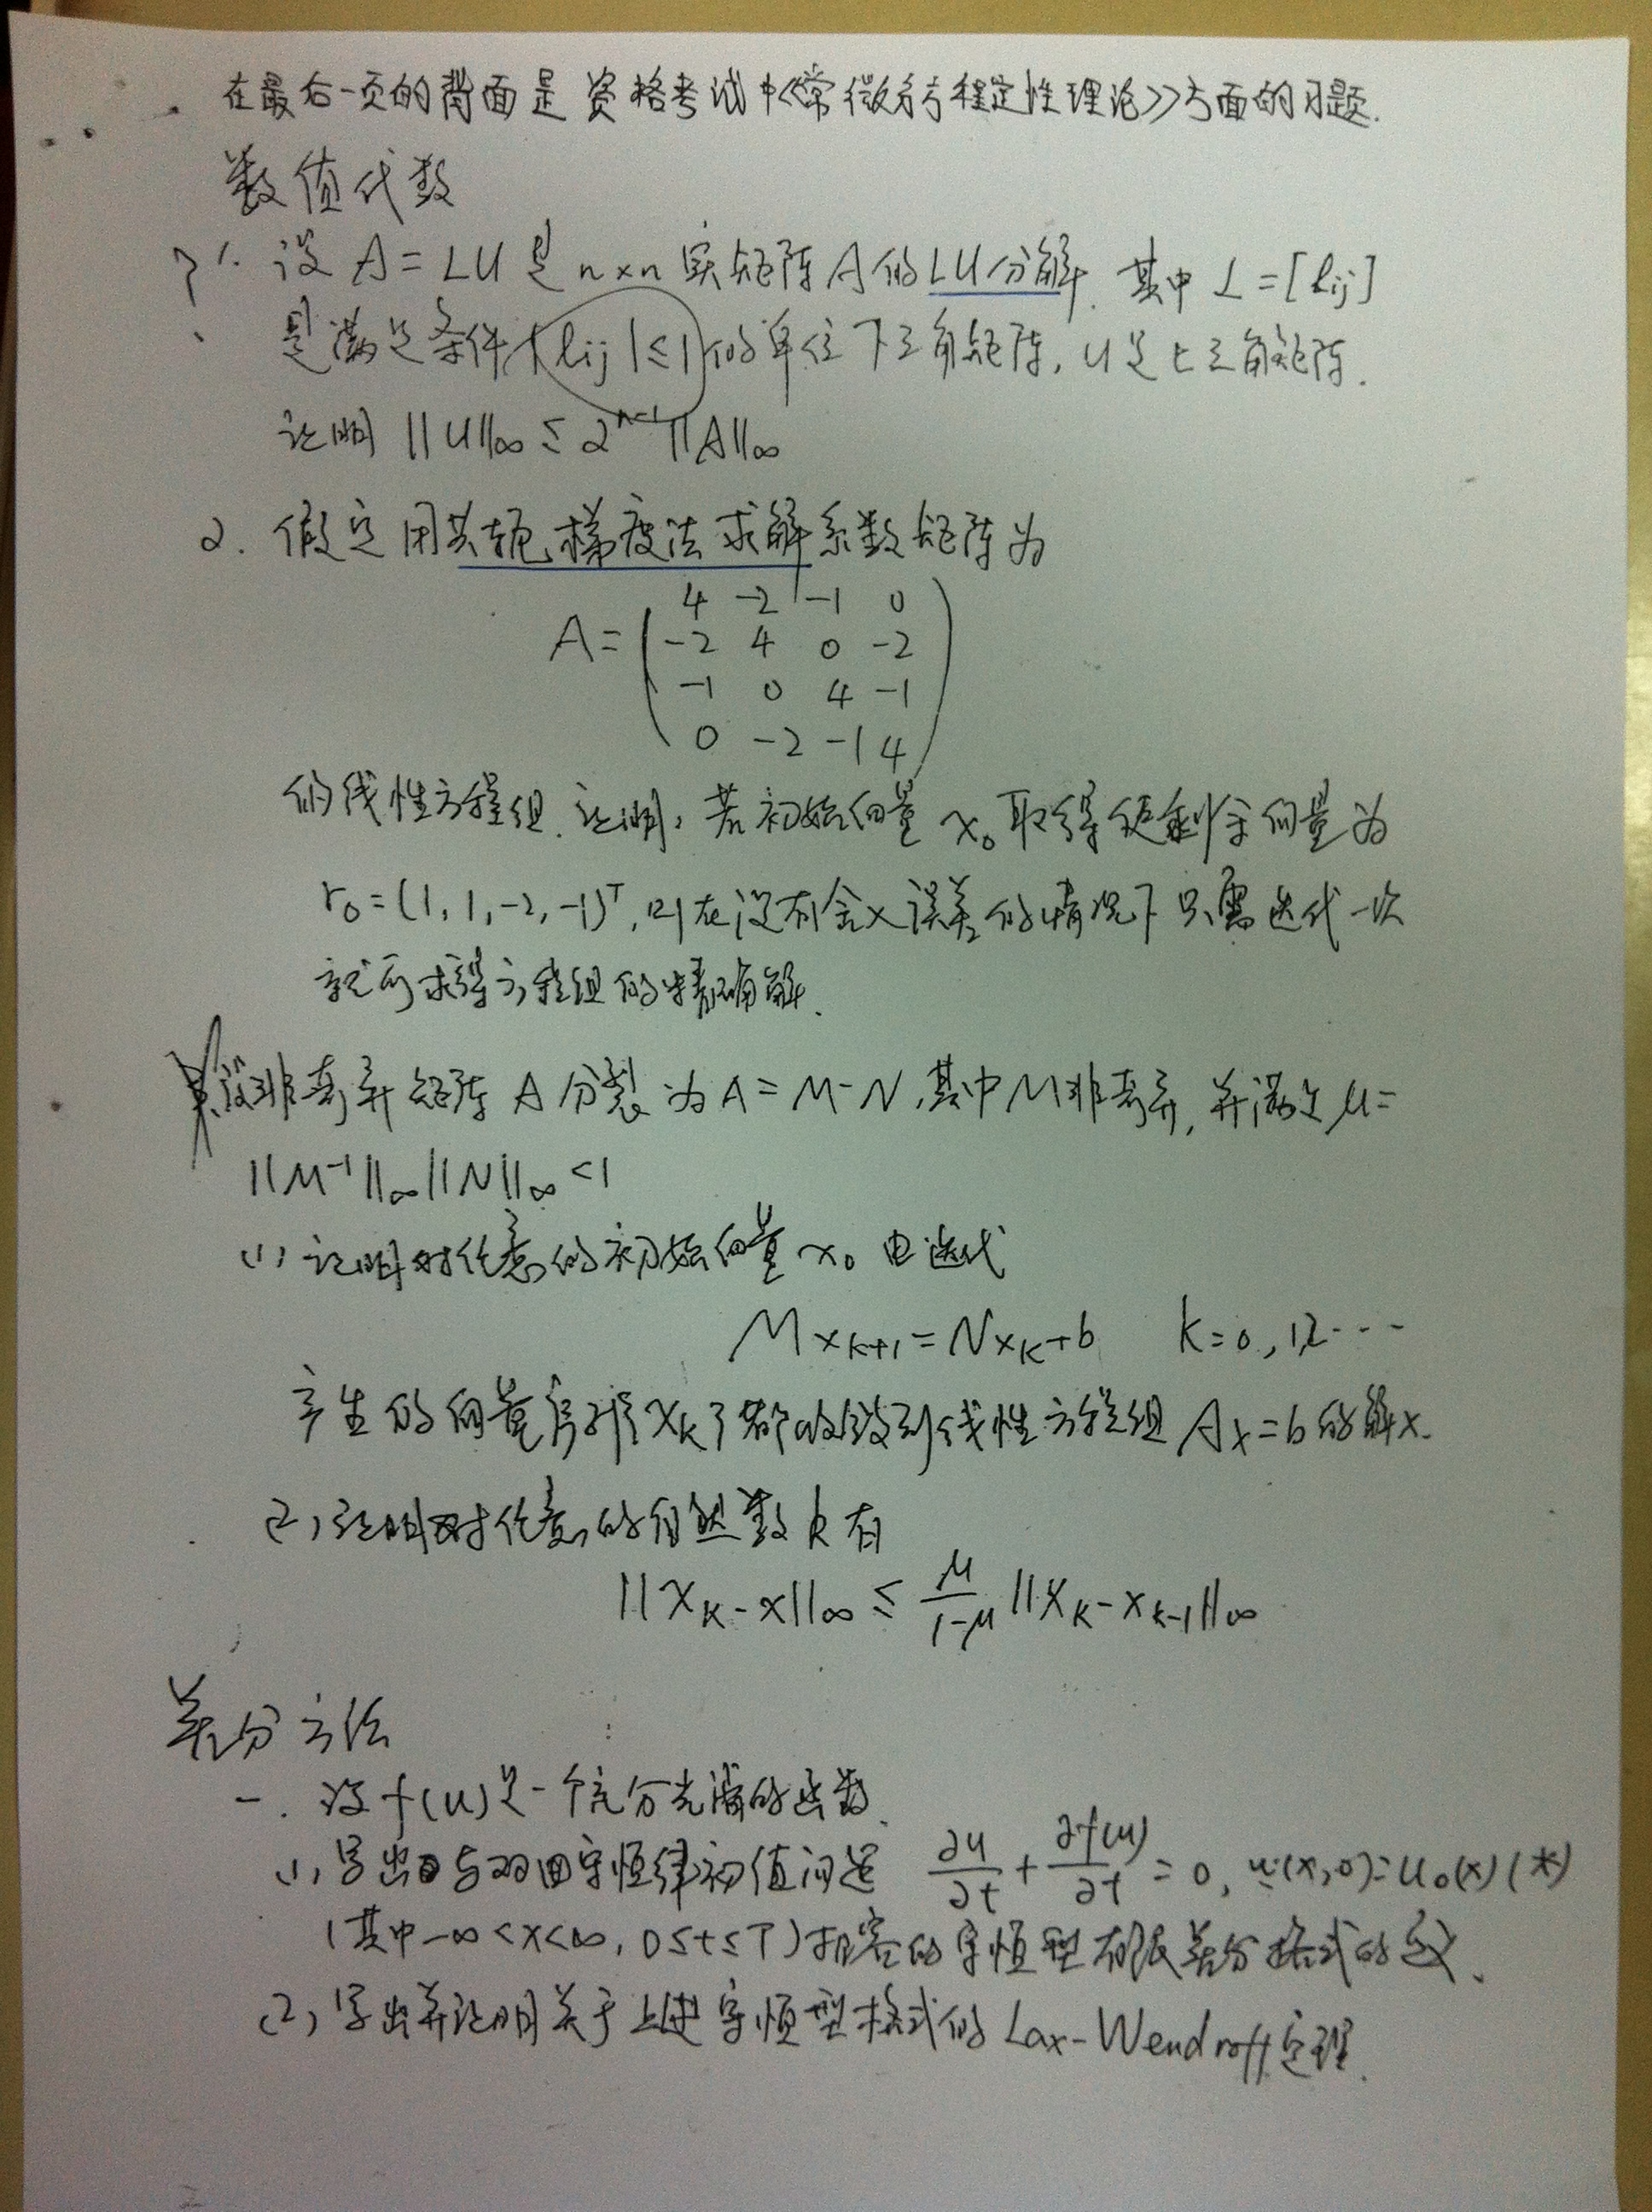 在最后一页的背面是资格考试中《常微分方程定性理论》方面的习题.
数值代数
? 1. 设 A = LU 是 n×n 实矩阵 A 的 LU 分解. 其中 L = [lij]
是满足条件 |lij| ≤ 1 的单位下三角矩阵, U 是上三角矩阵.
证明 ||U||∞ ≤ 2ⁿ⁻¹ ||A||∞
2. 假定用共轭梯度法求解系数矩阵为
4 -2 -1 0
A = -2 4 0 -2
-1 0 4 -1
0 -2 -1 4
的线性方程组. 证明: 若初始向量 x₀ 取得使剩余向量为
r₀ = (1, 1, -2, -1)ᵀ, 则在没有舍入误差的情况下只需迭代一次
就可求得方程组的精确解.
设非奇异矩阵 A 分裂为 A = M - N, 其中 M 非奇异, 并满足 μ =
||M⁻¹||∞ ||N||∞ < 1
(1) 证明对任意的初始向量 x₀ 由迭代
M xk+1 = N xk + b k = 0, 1, 2 ...
产生的向量序列{xk}都收敛到线性方程组 Ax = b 的解 x.
(2) 证明对任意的自然数 k 有
||xk - x||∞ ≤ μ/(1-μ) ||xk - xk-1||∞
差分方法
一. 设 f(u) 是一个充分光滑的函数.
(1) 写出与双曲守恒律初值问题 ∂u/∂t + ∂f(u)/∂t = 0, u(x,0) = u₀(x) (*)
(其中 -∞ < x < ∞, 0 ≤ t ≤ T) 相容的守恒型有限差分格式的定义.
(2) 写出并证明关于上述守恒型格式的 Lax-Wendroff 定理.